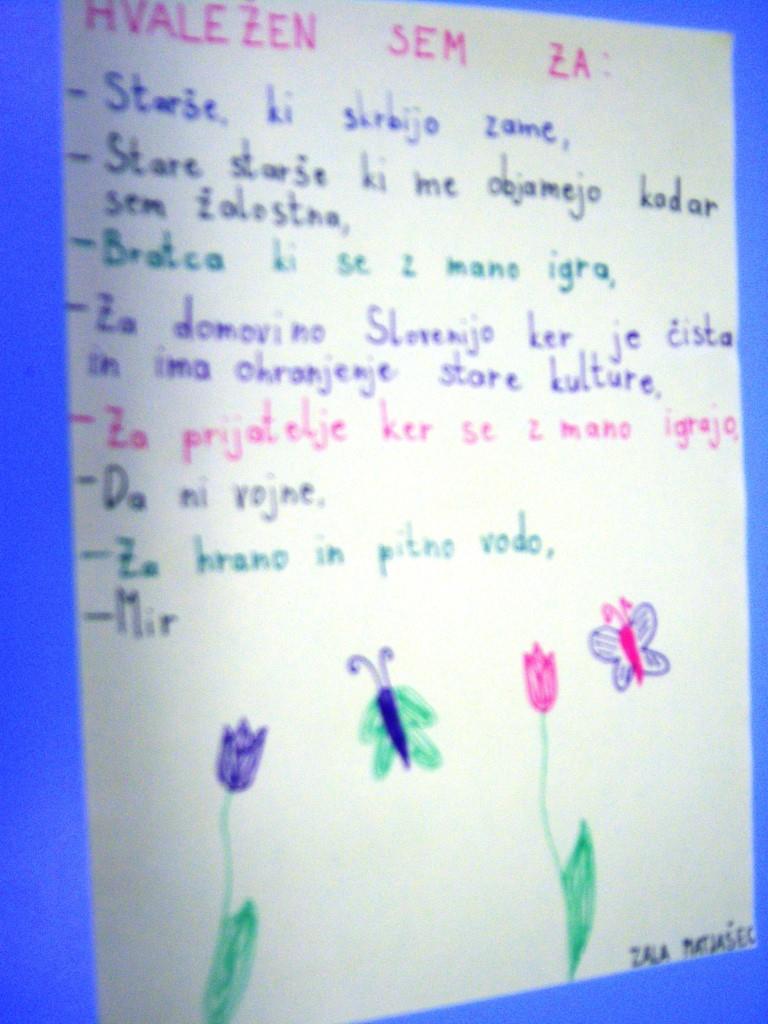 HVALEŽEN SEM ZA:
- Starše, ki skrbijo zame,
- Stare starše ki me objamejo kadar
sem žalostna,
- Bratca ki se z mano igra,
- Za domovino Slovenijo ker je čista
in ima ohranjenje stare kulture,
- Za prijatelje ker se z mano igrajo,
- Da ni vojne,
- Za hrano in pitno vodo,
- Mir
ZALA MATJAŠEC